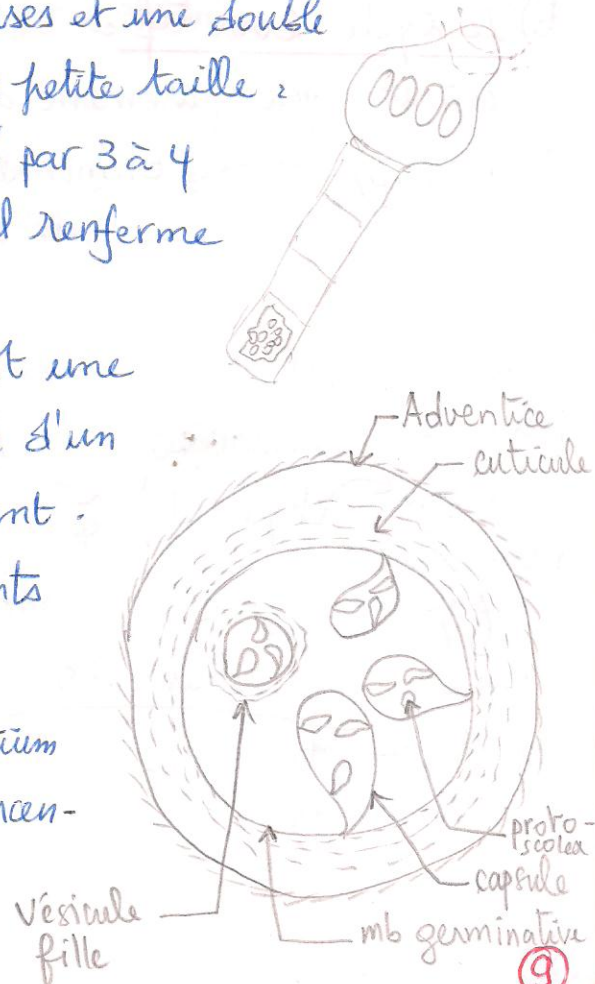 ses et une double
petite taille :
par 3 à 4
l renferme
t une
d'un
nt.
nts
ium
cen-
Adventice
cuticule
proto-
scolex
capsule
mb germinative
Vésicule
fille
9